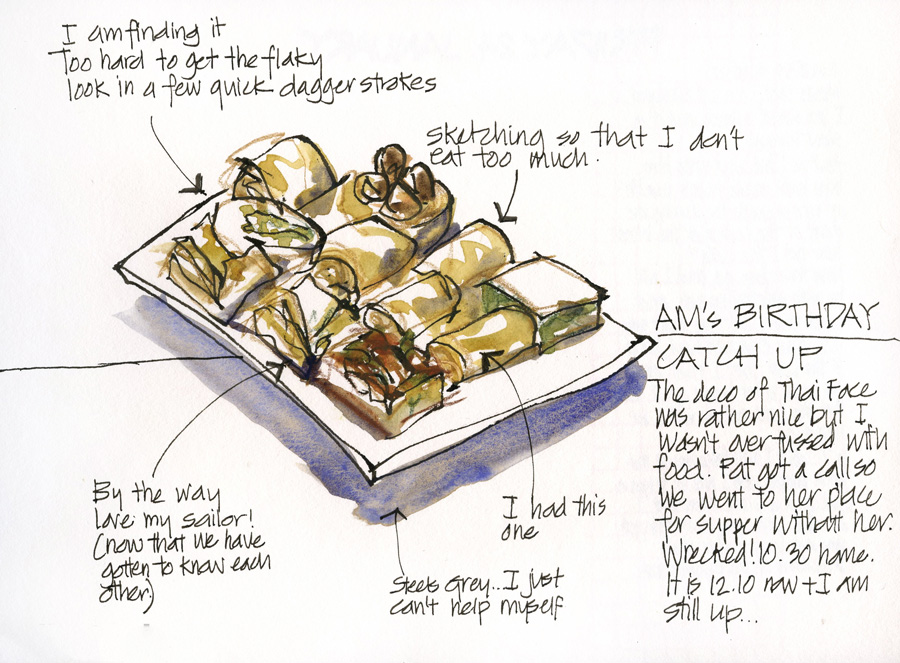 I am finding it
Too hard to get the flaky
look in a few quick dagger strokes
sketching so that I don't
eat too much.
AM's BIRTHDAY
CATCH UP
The deco of Thai Face
was rather nice but I
wasn't over fussed with
food. Pat got a call so
we went to her place
for supper without her.
Wrecked! 10.30 home.
It is 12.10 now + I am
still up...
By the way
Love my sailor!
(now that we have
gotten to know each
other)
I had this
one
Steels Grey...I just
can't help myself